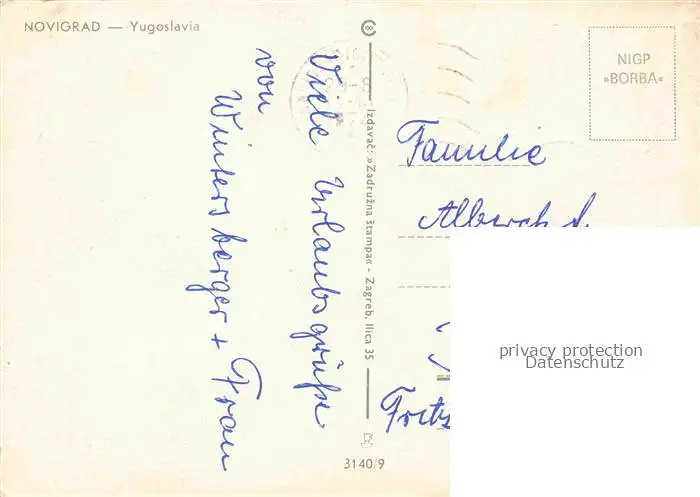 NOVIGRAD — Yugoslavia
Viele Urlaubsgrüße
von
Wintersberger + Frau
Izdavač: »Zadružna štampa« - Zagreb, Ilica 35
3140/9
NIGP
»BORBA«
Familie
privacy protection
Datenschutz